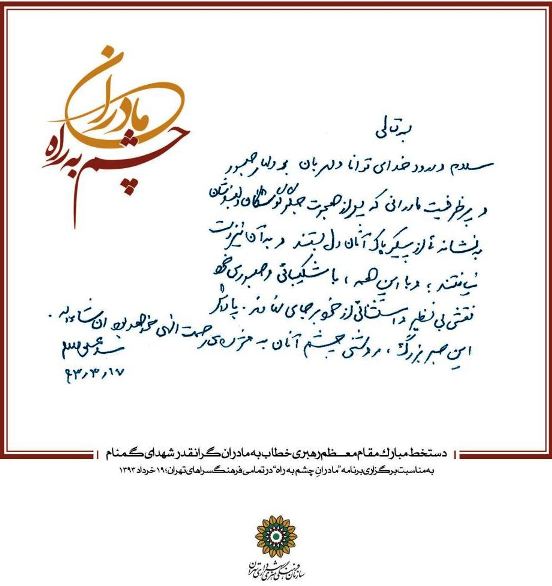 مادران
چشم به راه
بسمه تعالی
سلام و درود خدای توانا و مهربان بر دلهای صبور
و پرظرفیت مادرانی که پس از هجرت جگرگوشگان و دلبندشان
نشانه‌ای از پیکر پاک آنان دل بستند و به آن نیز دست
نیافتند ؛ و با این همه ، با شکیبائی و صبوری خود
نقشی بی نظیر و استثنائی از خود بر جای نهادند . پاداش
این صبر بزرگ ، روشنی چشم آنان به رحمت الهی خواهد بود ان شاءالله .
سیدعلی خامنه‌ای
۹۳٫۳٫۱۷
دستخط مبارک مقام معظم رهبری خطاب به مادران گرانقدر شهدای گمنام
به مناسبت برگزاری برنامه "مادران چشم به راه" در تمامی فرهنگسراهای تهران؛ ۱۹ خرداد ۱۳۹۳
سازمان فرهنگی هنری شهرداری تهران